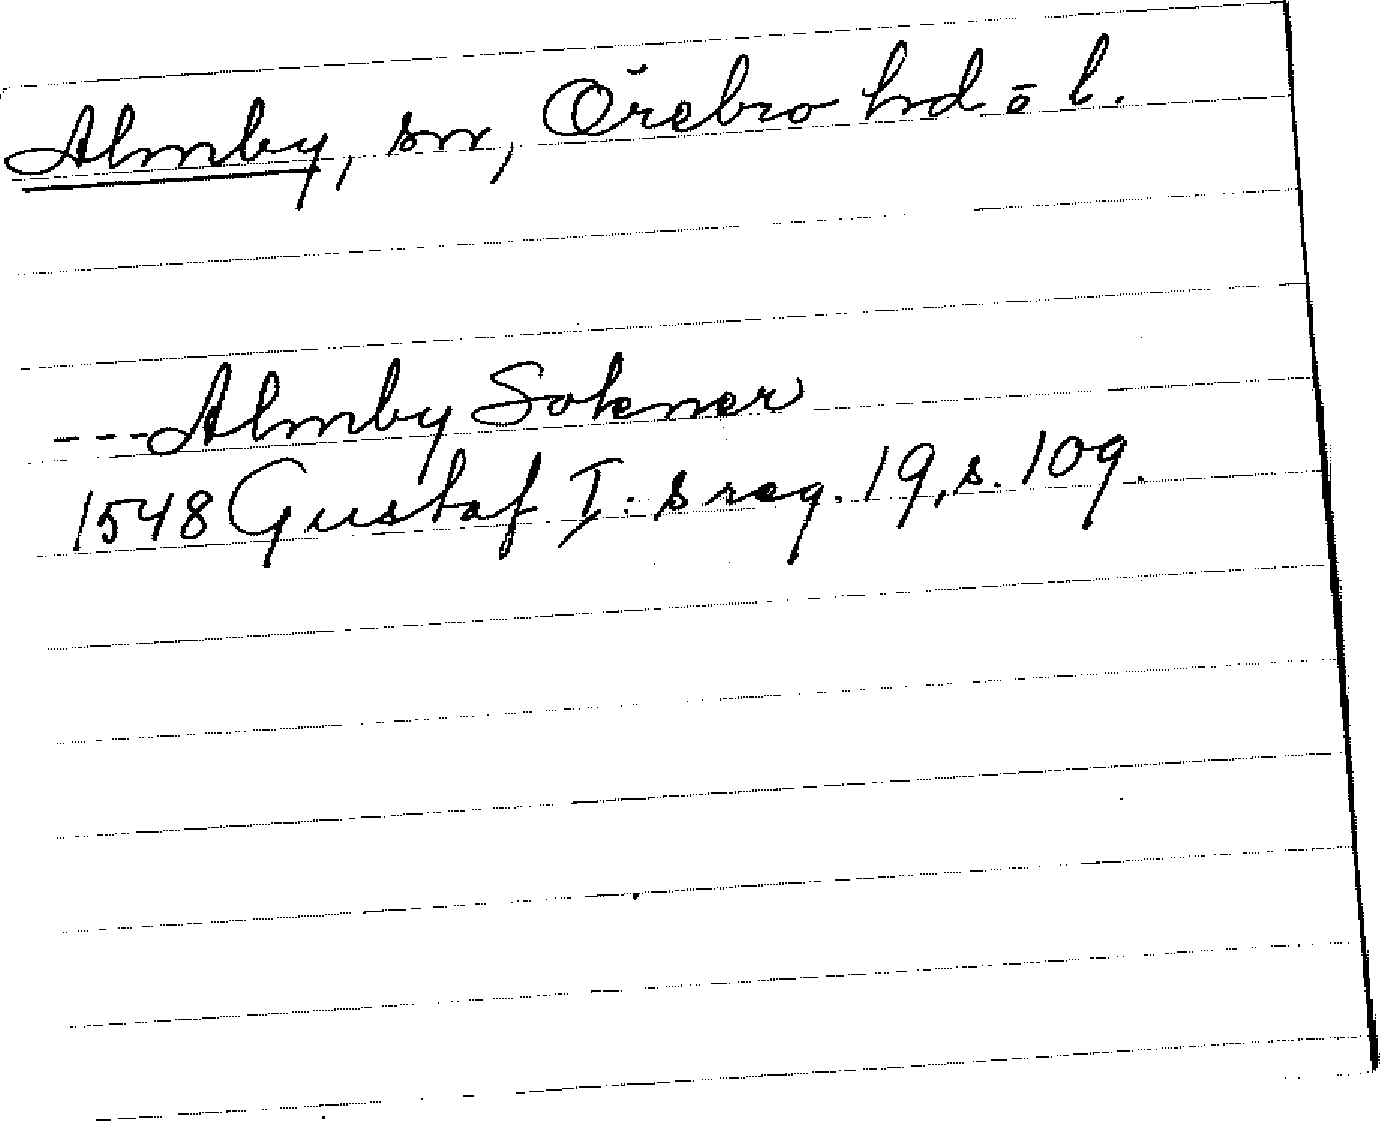 Almby, sn, Örebro hd ō l.
---Almby Sokner
1548 Gustaf I:s reg. 19, s. 109.